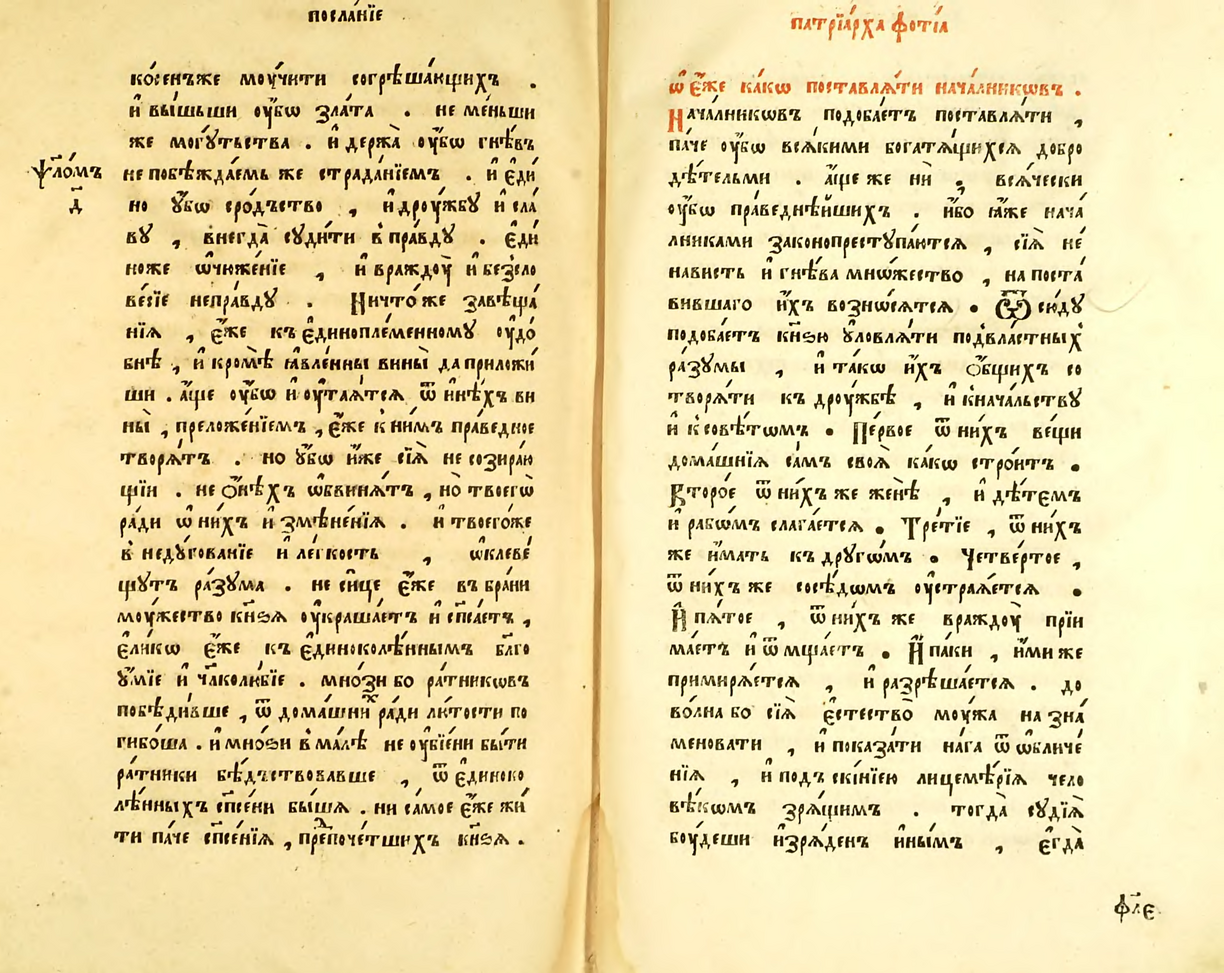 посла́нїе
ко́сенъже моу́чити согрѣша́ющихъ .
и҆ вы́шьши ᲂу҆́бѡ зла́та . не ме́ньши
же могꙋ́тьства . и҆ держа̀ ᲂу҆́бѡ гнѣ́въ
ѱало́мъ
д҃
не побѣжда́емь же страда́нїемъ . и҆ є҆ди
но ᲂу҆́бѡ сро́дъство , и҆ дрꙋ́жбꙋ и҆ сла́
вꙋ , внегда̀ сꙋди́ти в пра́вдꙋ . є҆ди
ноже ѡ҆чюже́нїе , и҆ враждꙋ̀ и҆ безсло
ве́сїе непра́вдꙋ . Ничто́же завѣща́
нїѧ , є҆́же къ є҆динопле́менномꙋ ᲂу҆до́
бнѣ , и҆ кромѣ̀ ꙗ҆вле́нны вины̀ да приложи́
ши . а҆́ще ᲂу҆́бѡ и҆ ᲂу҆таѧ́тсѧ ѿ и҆нѣ́хъ ви
ны̀ , преложе́нїемъ , є҆́же к ни́мъ пра́ведное
творѧ́тъ . но ᲂу҆́бѡ и҆́же сїѧ̀ не созира́ю
щїи . не ѻ҆нѣ́хъ ѡ҆бвинѧ́тъ , но̀ твоегѡ̀
ра́ди ѡ҆ ни́хъ и҆змѣне́нїѧ . и҆ твоего́же
в недꙋ́гованїе и҆ ле́гкость , ѡ҆клеве́
щꙋтъ ра́зꙋма . не си́це є҆́же въ бра́ни
мꙋ́жество кн҃зѧ ᲂу҆краша́етъ и҆ сп҃са́етъ ,
є҆ли́кѡ є҆́же къ є҆диноколѣ́ннымъ бл҃го
ᲂу҆́мїе и҆ чл҃колю́бїе . мно́зи бо ра́тникѡвъ
побѣди́вше , ѿ дома́шнихъ ра́ди лю́тости по
ги́боша . и҆ мно́зи в ма́лѣ не ᲂу҆бїе́ни бы́ти
ра́тники бѣ́дъствовавше , ѿ є҆диноко
лѣ́нныхъ сп҃се́ни бы́шѧ . ни са́мое є҆́же жи́
ти па́че сп҃се́нїѧ , предпоче́тшихъ кн҃зѧ .
патрїа́рха фо́тїа
ѡ҆ є҆́же ка́кѡ поставлѧ́ти нача́лникѡвъ .
Нача́лникѡвъ подоба́етъ поставлѧ́ти ,
па́че ᲂу҆́бѡ всѧ́кими богатѧ́щихсѧ добро
дѣ́тельми . а҆́ще же нѝ , всѧ́чески
ᲂу҆́бѡ праведнѣ́йшихъ . и҆́бо ꙗ҆́же нача́
лниками законопрестꙋпа́ютсѧ , сїѧ̀ не́
нависть и҆ гнѣ́ва мно́жество , на поста́
вившаго и҆́хъ возно́сѧтсѧ . Ѿ сю́дꙋ
подоба́етъ кн҃зю ᲂу҆ловлѧ́ти подвла́стных
ра́зꙋмы , и҆ та́кѡ и҆́хъ ѻ҆́бщихъ со
творѧ́ти къ дрꙋ́жбѣ , и҆ кнача́льствꙋ
и҆ ксовѣ́тѡмъ . Пе́рвое ѿ ни́хъ ве́щи
дома́шнїѧ са́мъ своѧ̀ ка́кѡ стро́итъ .
Второ́е ѿ ни́хъ же женѣ̀ , и҆ дѣ́темъ
и҆ рабѡ́мъ слага́етсѧ . Тре́тїе , ѿ ни́хъ
же и҆́мать къ дрꙋгѡ́мъ . Четве́ртое ,
ѿ ни́хъ же сосѣ́дѡмъ ᲂу҆стралѧ́етсѧ .
И҆ пѧ́тое , ѿ ни́хъ же враждꙋ̀ прїи
ма́етъ и҆ ѿмща́етъ . И҆ па́ки , и҆́ми же
примирѧ́етсѧ , и҆ разрѣша́етсѧ . до
во́лна бо сїѧ̀ є҆стество̀ мꙋ́жа на зна́
меновати , и҆ показа́ти на́га ѿ ѡ҆бличе́
нїѧ , и҆ подъ скі́нїею лицемѣ́рїѧ чело
вѣ́кѡмъ зрѧ́щимъ . тогда̀ сꙋдїѧ̀
бꙋ́деши и҆зрѧ́денъ и҆ны́мъ , є҆гда̀
фл҃є